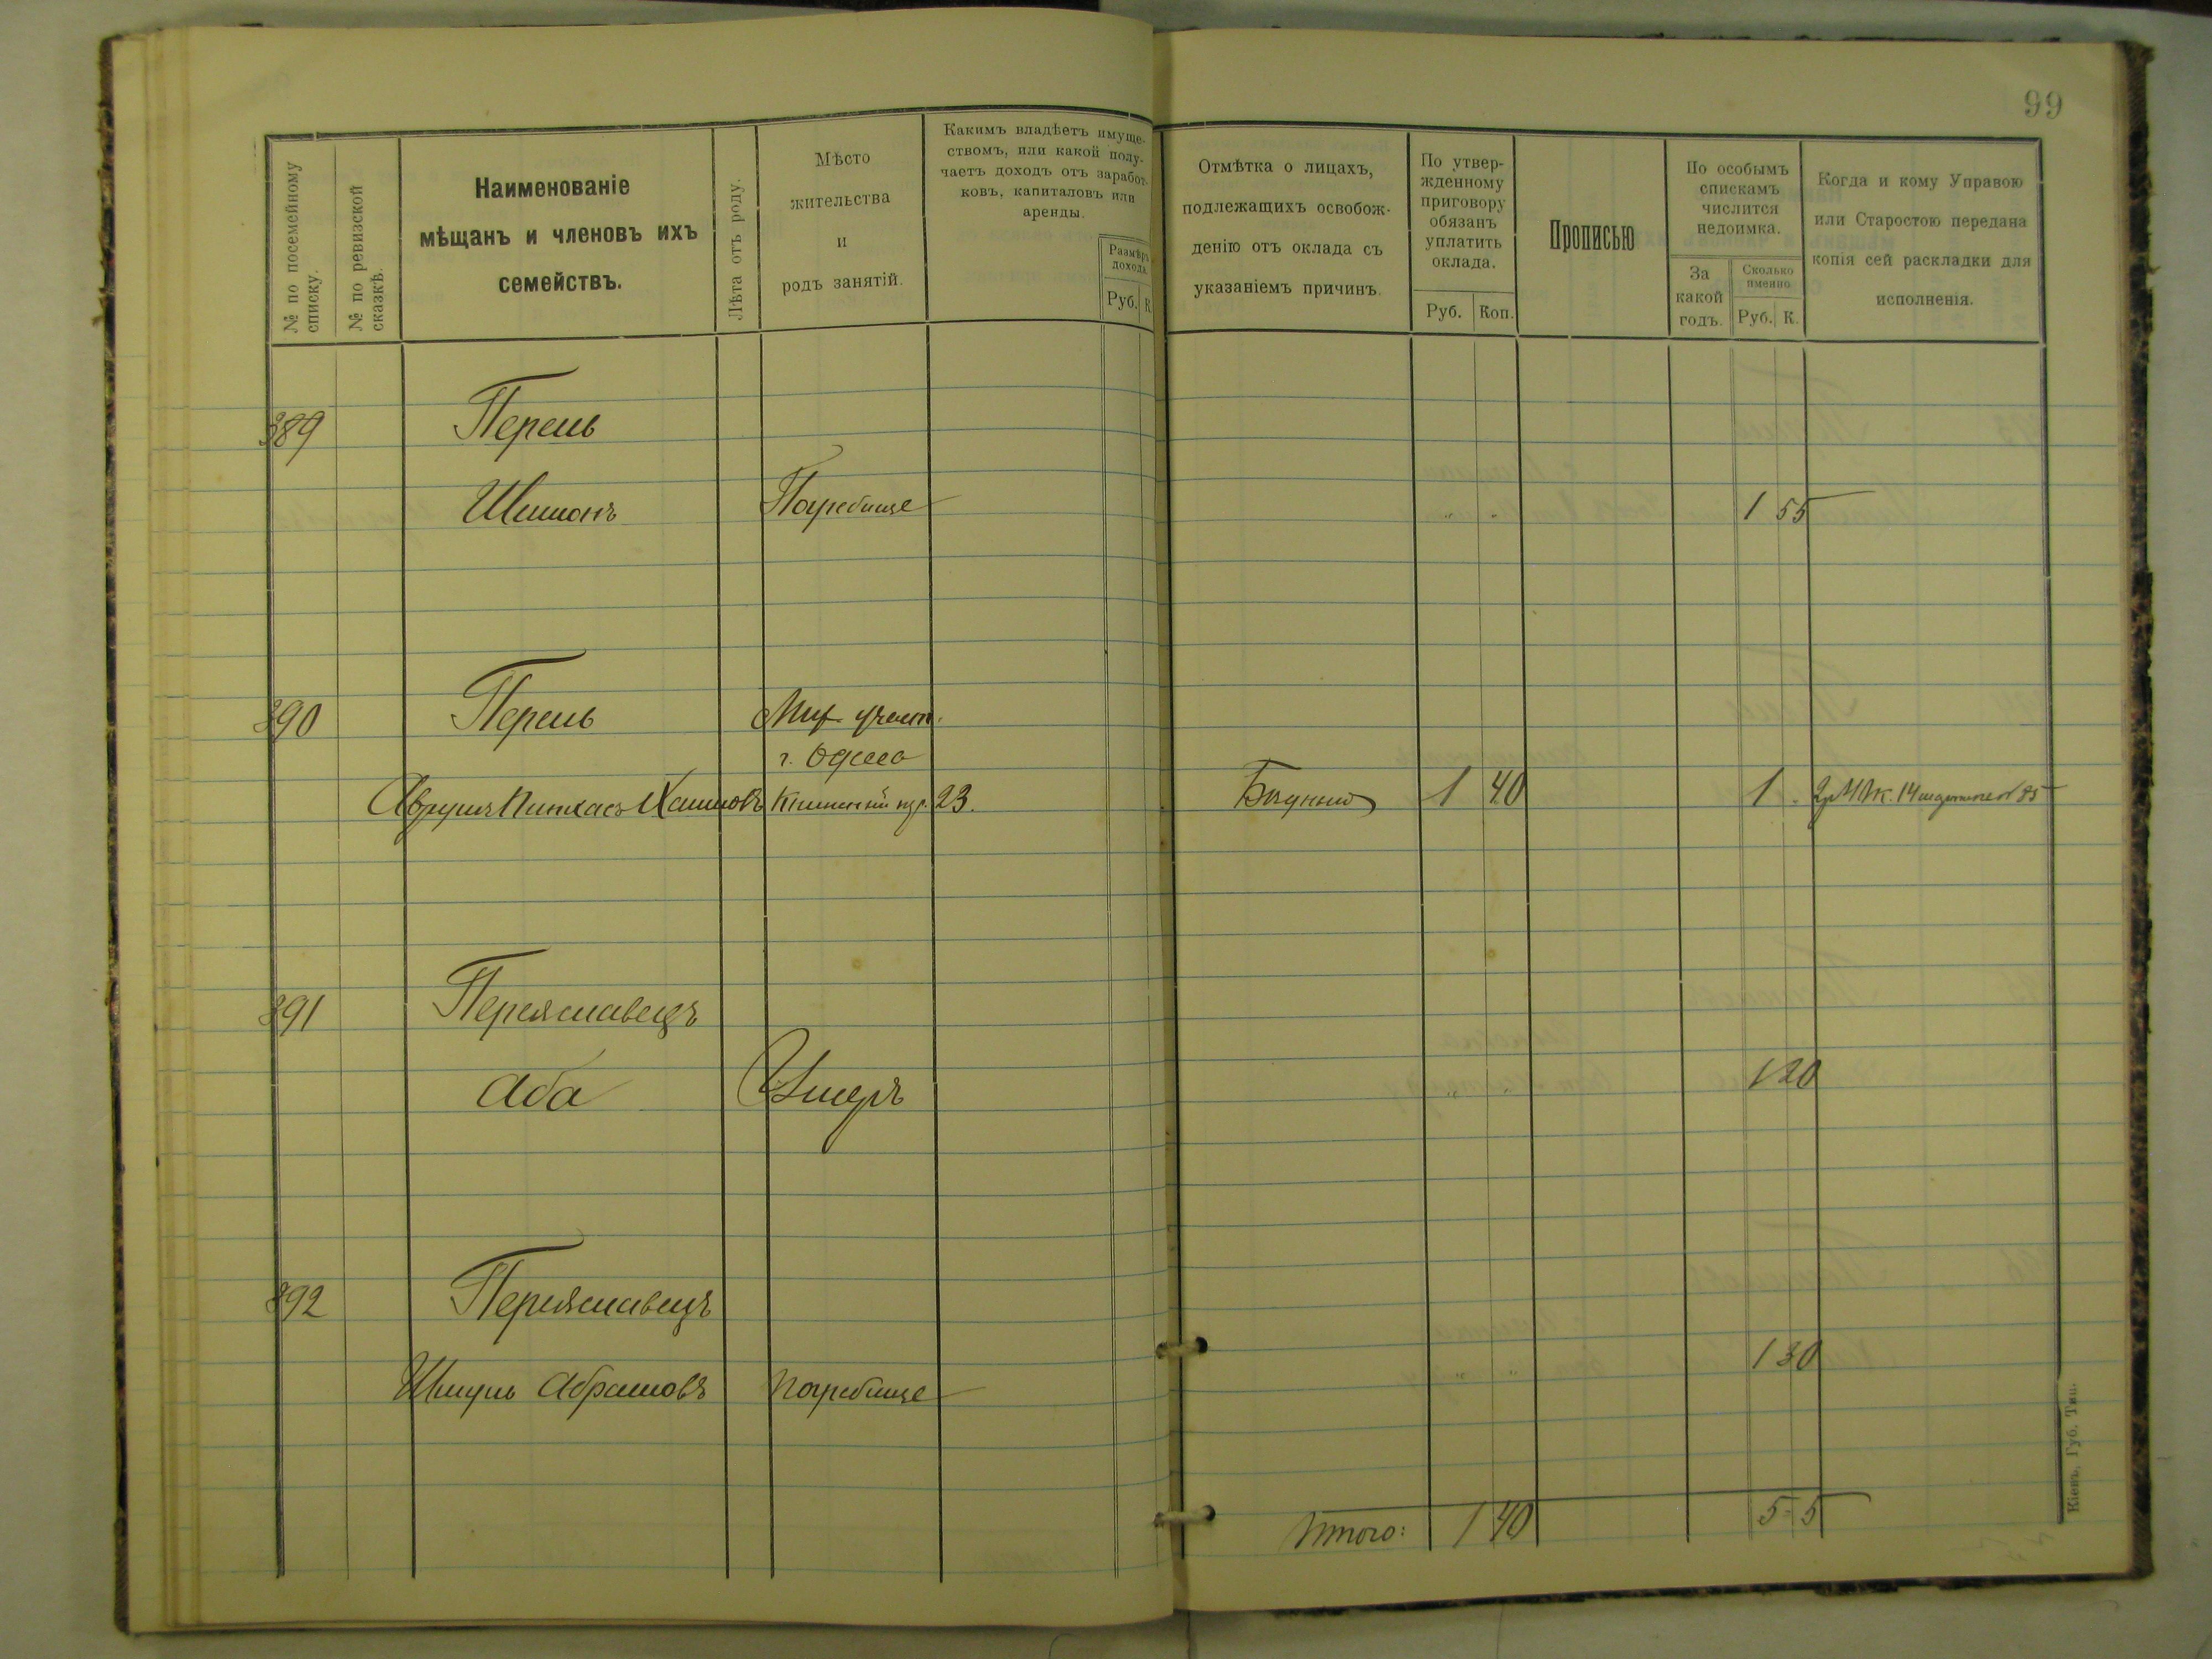 99
№ по посемейному списку.
№ по ревизской сказкѣ.
Наименованіе
мѣщанъ и членовъ ихъ
семействъ.
Лѣта отъ роду.
Мѣсто
жительства
и
родъ занятій.
Какимъ владѣетъ имуще-
ствомъ, или какой полу-
чаетъ доходъ отъ заработ-
ковъ, капиталовъ или
аренды.
Размѣръ
дохода.
Руб. К.
Отмѣтка о лицахъ,
подлежащихъ освобож-
денію отъ оклада съ
указаніемъ причинъ.
По утвер-
жденному
приговору
обязанъ
уплатить
оклада.
Руб. Коп.
Прописью
По особымъ
спискамъ
числится
недоимка.
За
какой
годъ.
Сколько
именно
Руб. К.
Когда и кому Управою
или Старостою передана
копія сей раскладки для
исполненія.
389 Перель
Шимонъ Погребище " " 1 55
390 Перель
г. Одесса
Пинхасъ Хаимовъ 23. 1 40 1 -
391 Переяславецъ
Аба Умеръ " " 1 20
392 Переяславецъ
Шмуль Абрамовъ Погребище " " 1 30
Итого: 1 40 5 5
Кіевъ, Губ. Тип.